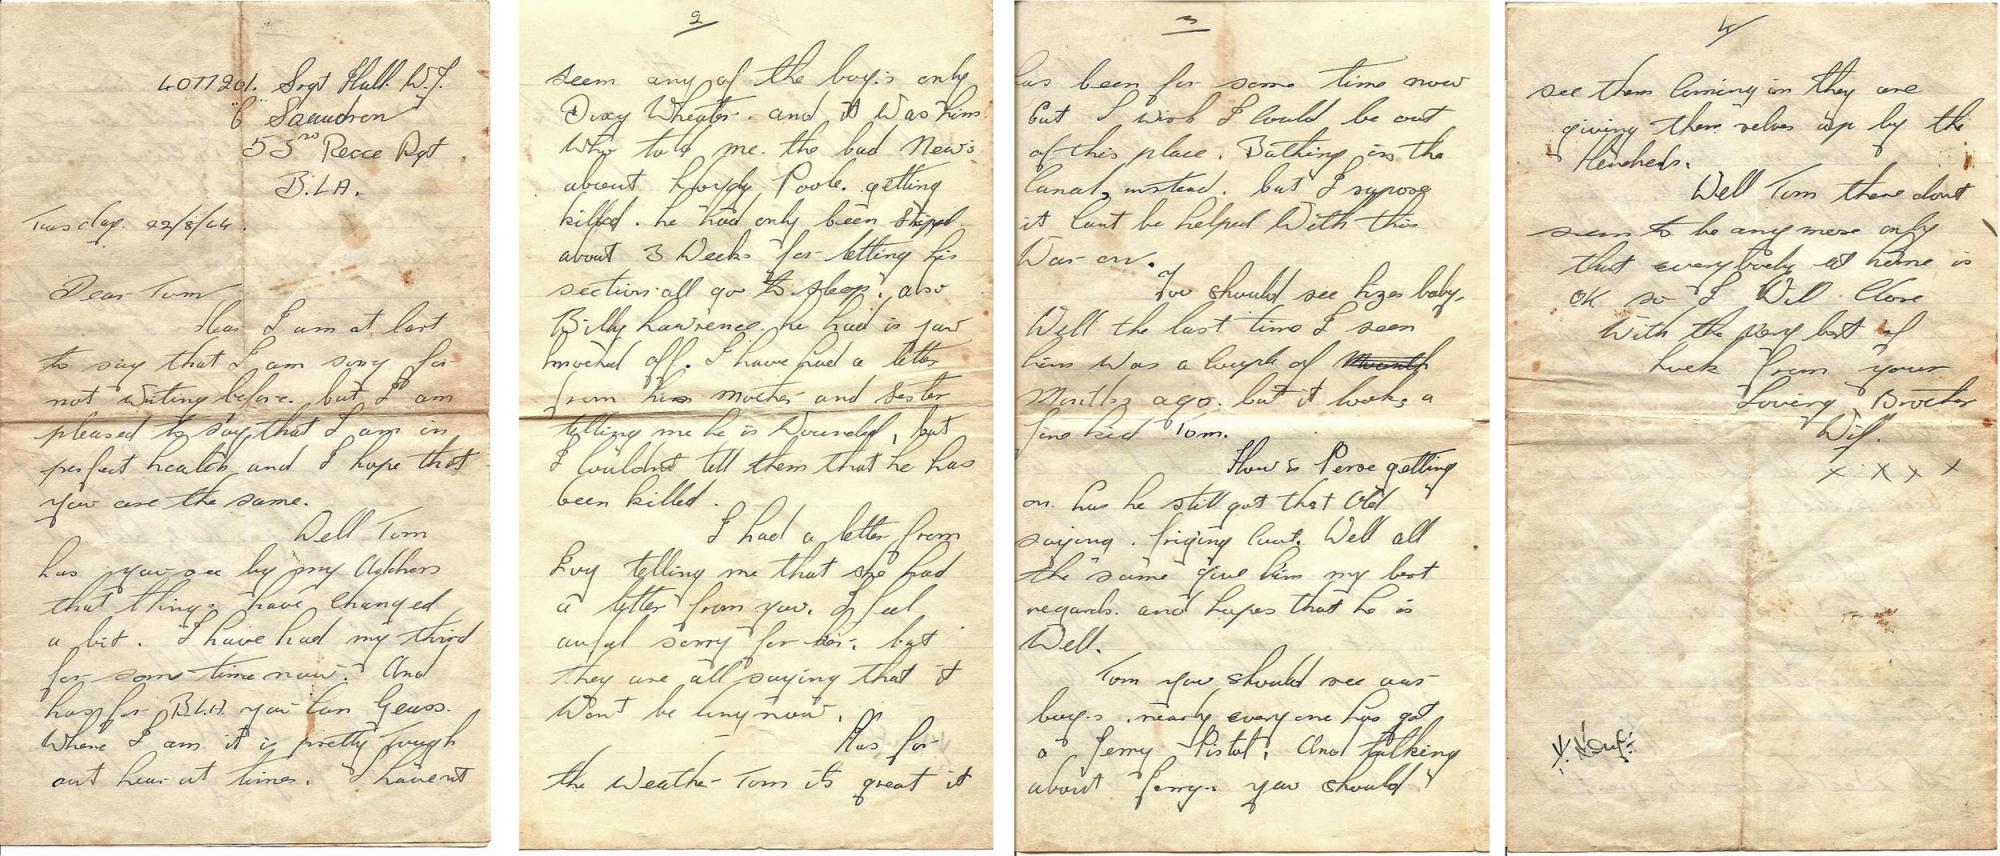 4077201. Srgt Hull. W.J.
"C" Saqudron
53rd Recce Rgt
B.L.A.
Tuesday. 22/8/44.
Dear Tom
Has I am at last
to say that I am sorry for
not writing before. but I am
pleased to say that I am in
perfect health and I hope that
you are the same.
Well Tom
has you see by my Address
that things have changed
a bit. I have had my third
for some time now. And
has for B.L.A. you can Geuss.
Where I am it is pretty Tough
out hear at times. I havent
2
seem any of the boys only
Dixy Wheater. and it was him
who told me. the bad News
about Poole. getting
killed. he had only been striped
about 3 Weeks for letting his
section all go to sleep. also
Billy Lawrence. he had is jaw
knocked off. I have had a letter
from his mother and sister
telling me he is Wounded, but
I couldnt tell them that he has
been killed.
I had a letter from
Ivy telling me that she had
a letter from you. I feel
awful sorry for her. but
they are all saying that it
Wont be long now.
Has for
the Weather Tom its great it
3
has been for some time now
but I wish I could be out
of this place. Bathing in the
Canal, instead. but I supose
it cant be helped With this
War on.
You should see Lizes baby.
Well the last time I seen
him was a couple of
Months ago. but it looks a
fine kid Tom.
How is Perse getting
on. has he still got that Old
saying. friging Cunt. Well all
the same give him my best
regards. and hopes that he is
Well.
Tom you should see our
boys. nearly every one has got
a Jerry Pistol. And talking
about Jerrys you should
4
see them coming in they are
giving them selves up by the
Hundreds.
Well Tom there dont
seem to be any more only
that everybody at home is
OK so I Will Close
With the very best of
luck from your
Loving Brother
Wif.
x x x x